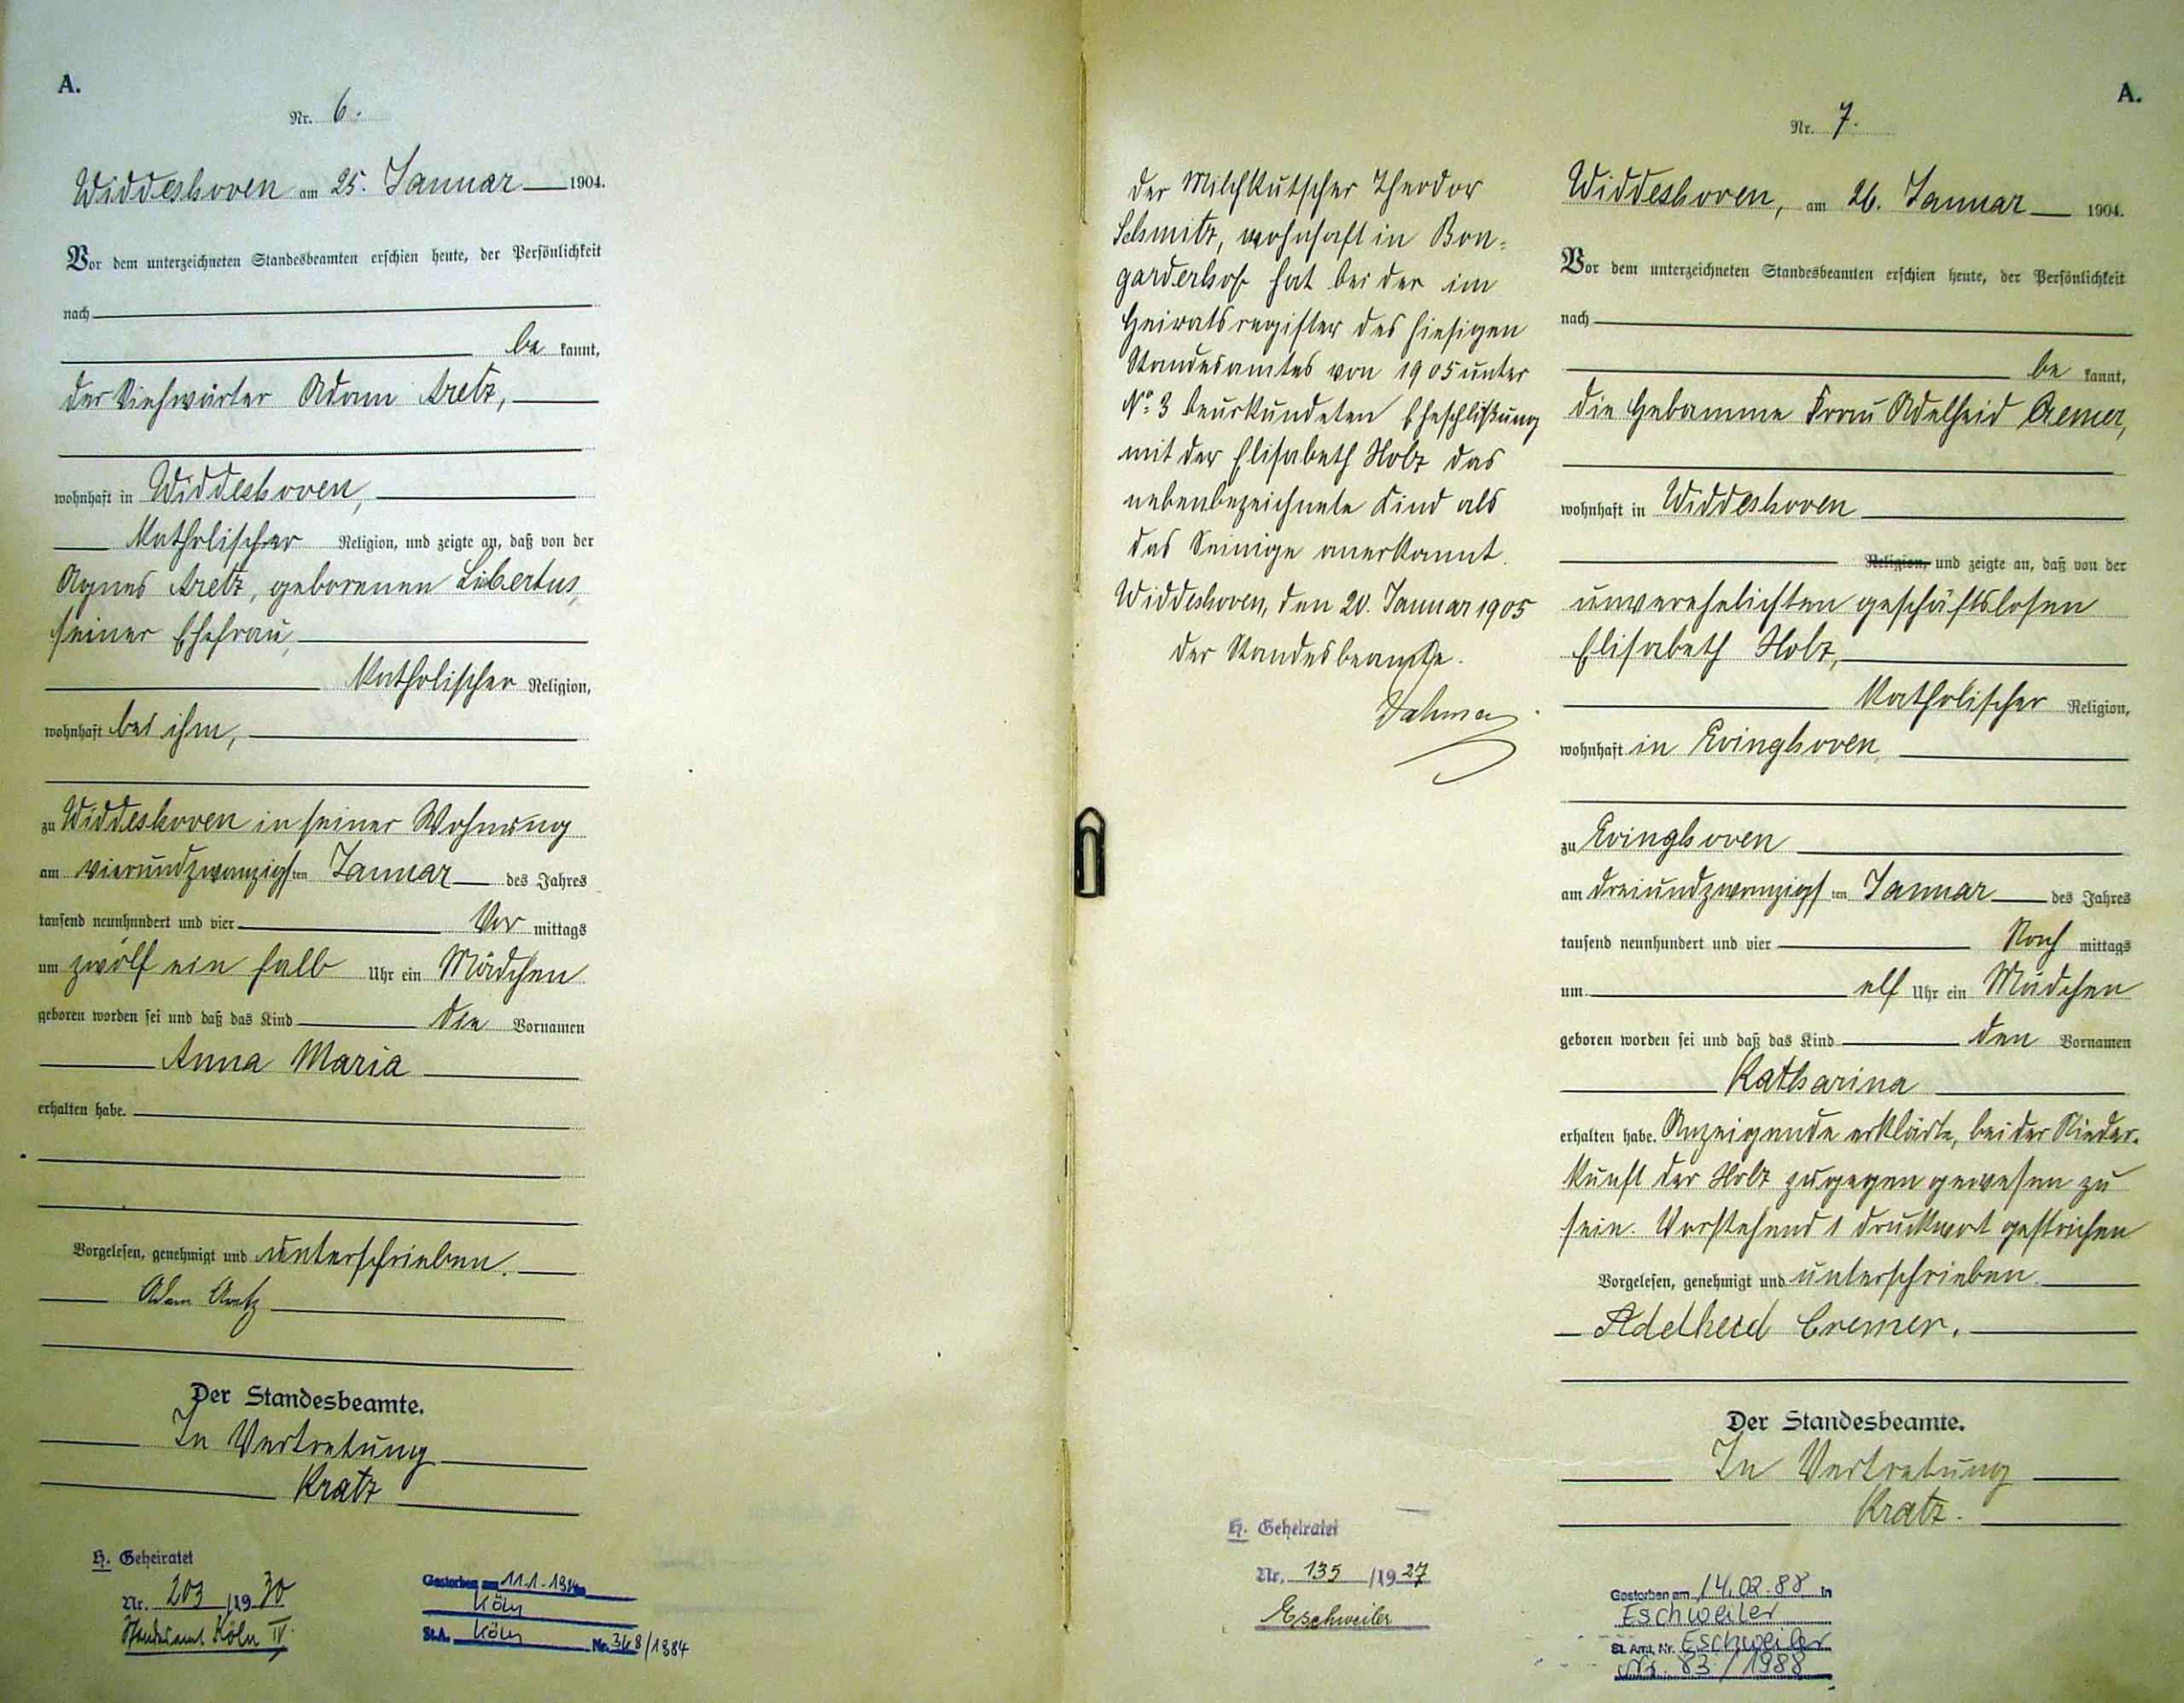 A.
Nr. 6.
Widdeshoven am 25. Januar 1904.
Vor dem unterzeichneten Standesbeamten erschien heute, der Persönlichkeit
nach
be kannt,
der Viehwärter Adam Aretz,
wohnhaft in Widdeshoven,
katholischer Religion, und zeigte an, daß von der
Agnes Aretz, geborenen Libertus,
seiner Ehefrau,
katholischer Religion,
wohnhaft bei ihm,
zu Widdeshoven in seiner Wohnung
am vierundzwanzigsten Januar des Jahres
tausend neunhundert und vier Vor mittags
um zwölf ein halb Uhr ein Mädchen
geboren worden sei und daß das Kind die Vornamen
Anna Maria
erhalten habe.
Vorgelesen, genehmigt und unterschrieben.
Adam Aretz
Der Standesbeamte.
In Vertretung
Kratz
H. Geheiratet
Nr. 203 /1930
Standesamt Köln IV
Gestorben am 11.1.1984
Köln
St.A. Köln Nr. 368/1984
der Milchkutscher Theodor
Schmitz, wohnhaft in Bon-
garderhof hat bei der im
Heiratsregister des hiesigen
Standesamtes von 1905 unter
No: 3 beurkundeten Eheschlißung
mit der Elisabeth Holz das
nebenbezeichnete Kind als
das Seinige anerkannt.
Widdeshoven, den 20. Januar 1905
Der Standesbeamte.
Dahmen
H. Geheiratet
Nr. 135 /1927
Eschweiler
A.
Nr. 7.
Widdeshoven, am 26. Januar 1904.
Vor dem unterzeichneten Standesbeamten erschien heute, der Persönlichkeit
nach
be kannt,
die Hebamme Frau Adelheid Cremer,
wohnhaft in Widdeshoven
Religion, und zeigte an, daß von der
unverehelichten geschäftslosen
Elisabeth Holz,
katholischer Religion,
wohnhaft in Evinghoven,
zu Evinghoven
am dreiundzwanzigsten Januar des Jahres
tausend neunhundert und vier Nach mittags
um elf Uhr ein Mädchen
geboren worden sei und daß das Kind den Vornamen
Katharina
erhalten habe. Anzeigende erklärte, bei der Nieder-
kunft der Holz zugegen gewesen zu
sein. Vorstehend 1 Druckwort gestrichen
Vorgelesen, genehmigt und unterschrieben
Adelheid Cremer.
Der Standesbeamte.
In Vertretung
Kratz.
Gestorben am 14.02.88 in
Eschweiler
St. Amt. Nr. Eschweiler
Nr. 83/1988